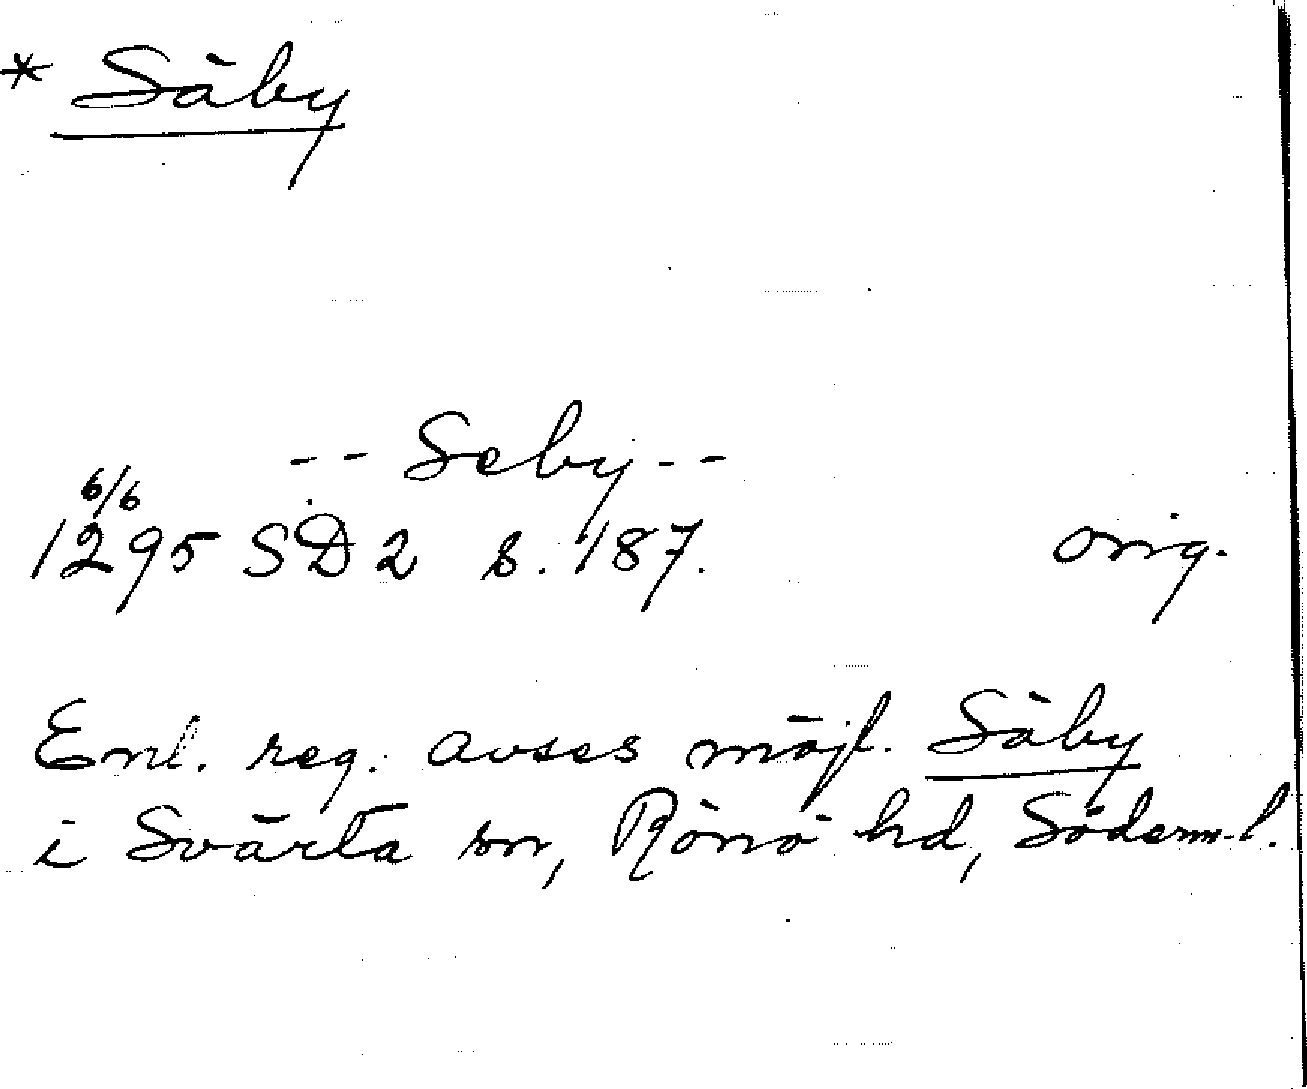 * Säby
-- Seby --
6/6
1295 SD 2 s. 187. orig.
Enl. reg. avses möjl. Säby
i Svärta sn, Rönö hd, Söderm.l.